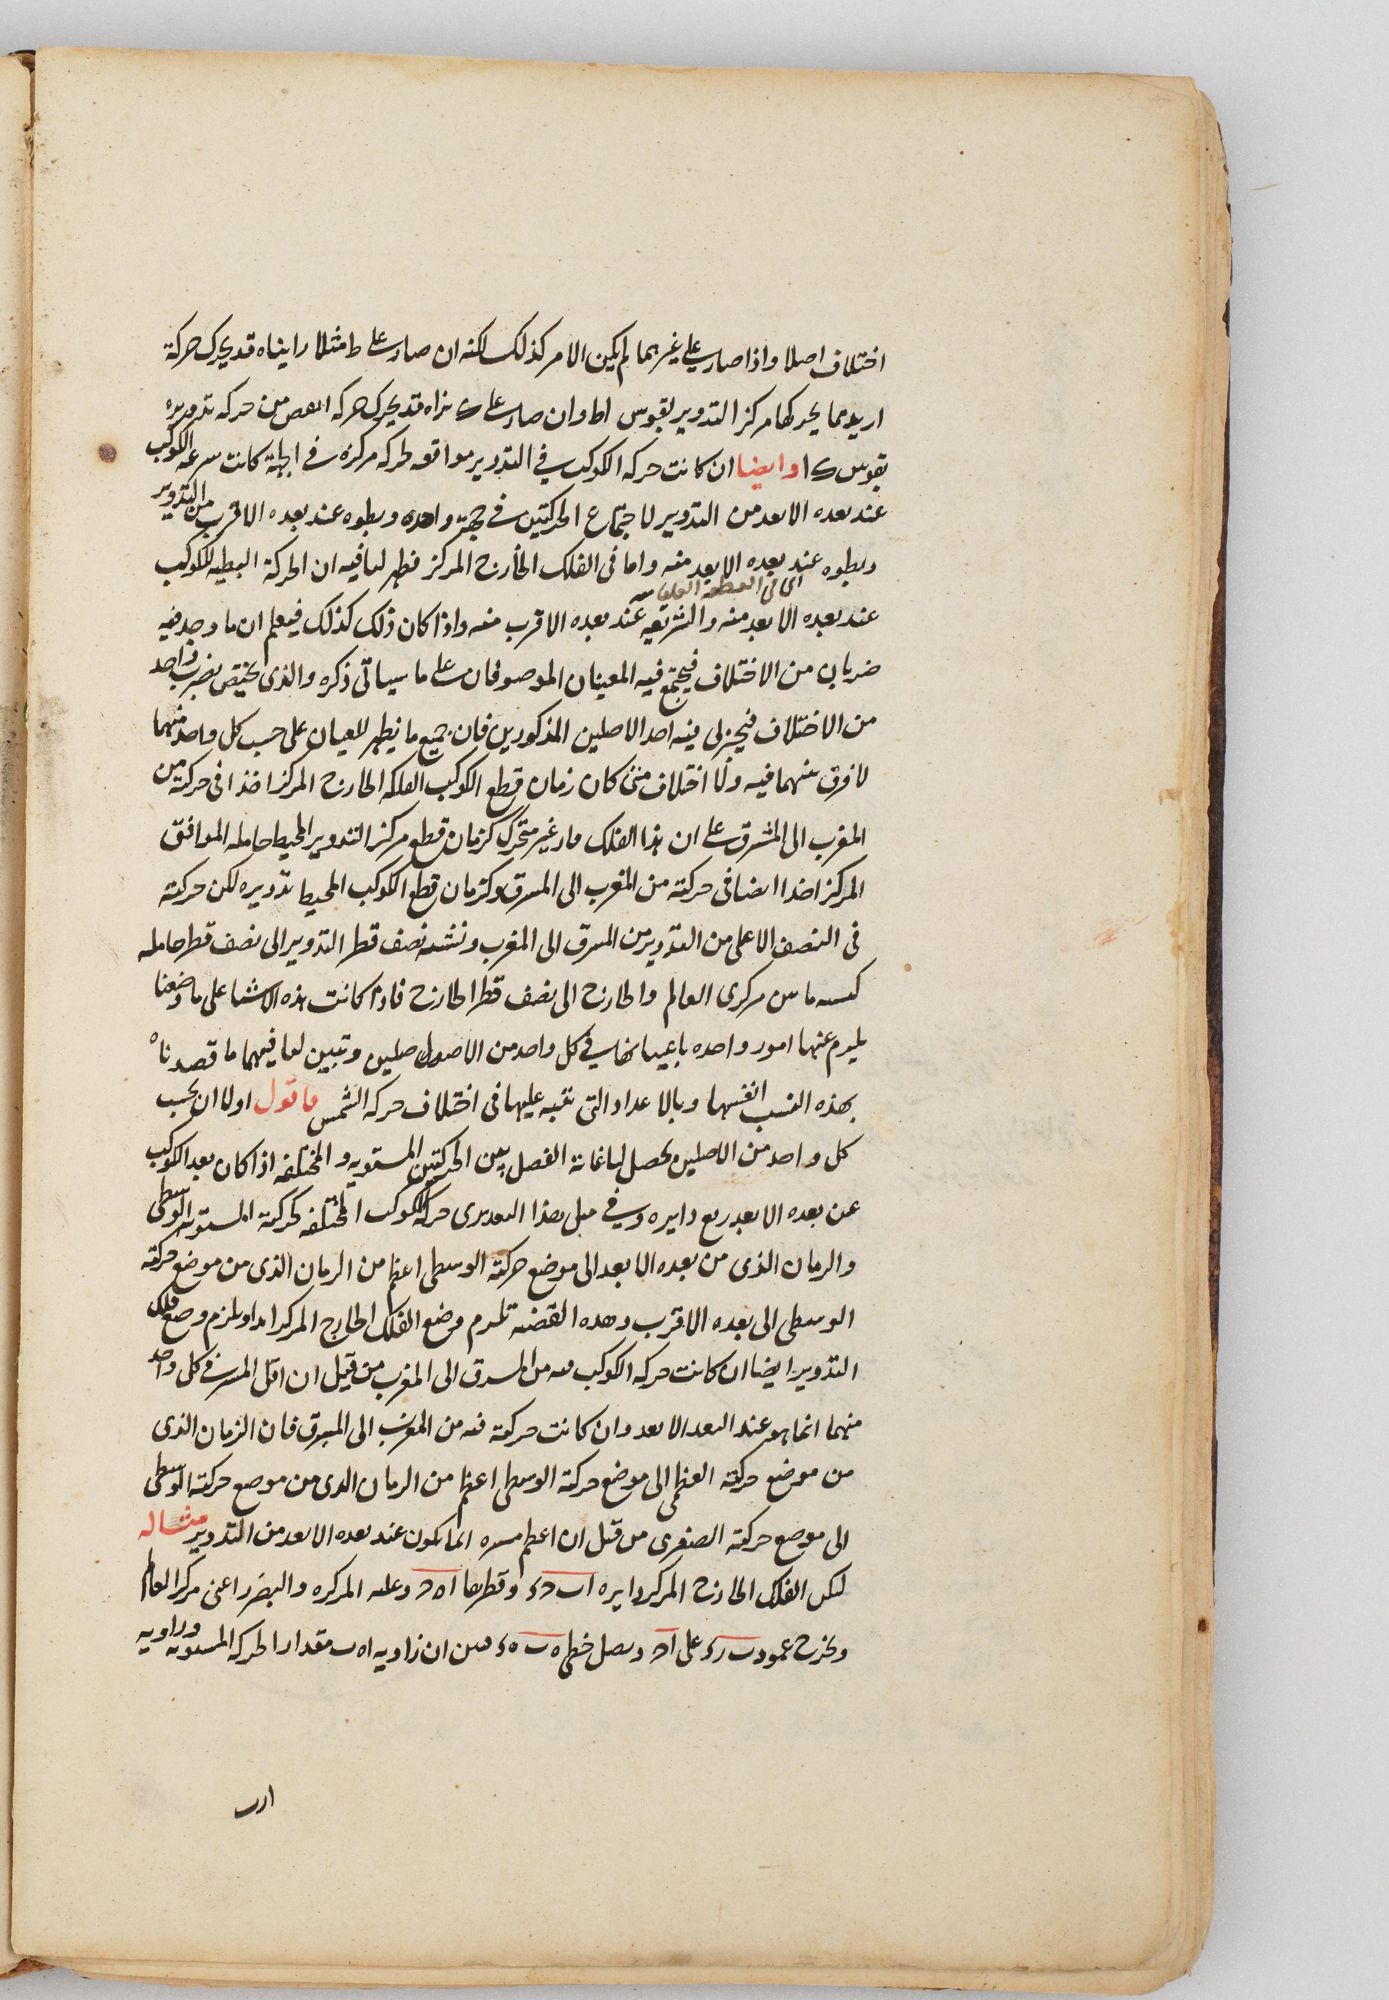 اختلاف اصلا واذا صار على غيرهما لم يكن الامر كذلك لكنه ان صار على ط مثلا رايناه قد يحرك حركة
ازيد مما يحركها مركز التدوير بقوس اط وان صار على ك نراه قد يحرك حركه انقص من حركه تدويره
بقوس ك ا وايضا ان كانت حركه الكوكب في التدوير موافقه لحركه مركزه في الجهة كانت سرعه الكوكب
عند بعده الابعد من التدوير لاجتماع الحركتين في جهة واحده وبطوه عند بعده الاقرب من التدوير
وبطوه عند بعده الابعد منه واما فى الفلك الخارج المركز فظهر لنا فيه ان الحركة البطيه للكوكب
اى فى القطعه
عند بعده الابعد منه والسريعه عند بعده الاقرب منه واذا كان ذلك كذلك فيعلم ان ما وجد فيه
ضربان من الاختلاف فيجتمع فيه المعنيان الموصوفان على ما سياتى ذكره والذى يختص بضرب واحد
من الاختلاف فيجزى فيه احد الاصلين المذكورين فان جميع ما يظهر للعيان على حسب كل واحد منهما
لا فرق بينهما فيه ولا اختلاف متى كان زمان قطع الكوكب الفلكه الخارج المركز اخذا فى حركته من
المغرب الى المشرق على ان هذا الفلك قار غير متحرك كزمان قطع مركز التدوير المحيط حامله الموافق
المركز اخذا ايضا فى حركته من المغرب الى المشرق وكزمان قطع الكوكب المحيط تدويره لكن حركته
فى النصف الاعلى من التدوير من المشرق الى المغرب ونسبه نصف قطر التدوير الى نصف قطر حامله
كنسبه ما بين مركزى العالم والخارج الى نصف قطر الخارج فاذا كانت هذه الاشيا على ما وضعنا
يلزم عنها امور واحده باعيانها في كل واحد من الاصلين وتبين لنا فيهما ما قصدناه
بهذه النسب انفسها وبالاعداد التى ننبه عليها فى اختلاف حركه الشمس فاقول اولا ان بحسب
كل واحد من الاصلين يحصل لنا غاية الفصل بين الحركتين المستويه والمختلفه اذا كان بعد الكوكب
عن بعده الابعد ربع دايره وفي مثل هذا البعد يرى حركة الكوكب المختلفه كحركته المستويه الوسطى
والزمان الذى من بعده الابعد الى موضع حركته الوسطى اعظم من الزمان الذى من موضع حركته
الوسطى الى بعده الاقرب وهذه القضيه تلزم موضع الفلك الخارج المركز ابدا ويلزم وضع فلك
التدوير ايضا ان كانت حركه الكوكب فيه من المشرق الى المغرب من قبل ان اقل المسير في كل واحد
منهما انما هو عند البعد الابعد وان كانت حركته فيه من المغرب الى المشرق فان الزمان الذى
من موضع حركته العظمى الى موضع حركته الوسطى اعظم من الزمان الذى من موضع حركته الوسطى
الى موضع حركته الصغرى من قبل ان اعظم مسيره انما يكون عند بعده الابعد من التدوير مثاله
ليكن الفلك الخارج المركز دايره اب ج د وقطرها ا ه ج وعليه المركز ه والبصر ز اعنى مركز العالم
ونخرج عمود ب ز د على ا ج ونصل خطى ه ب ه د فبين ان زاويه ا ه ب مقدار الحركه المستويه وزاويه
ا ز ب